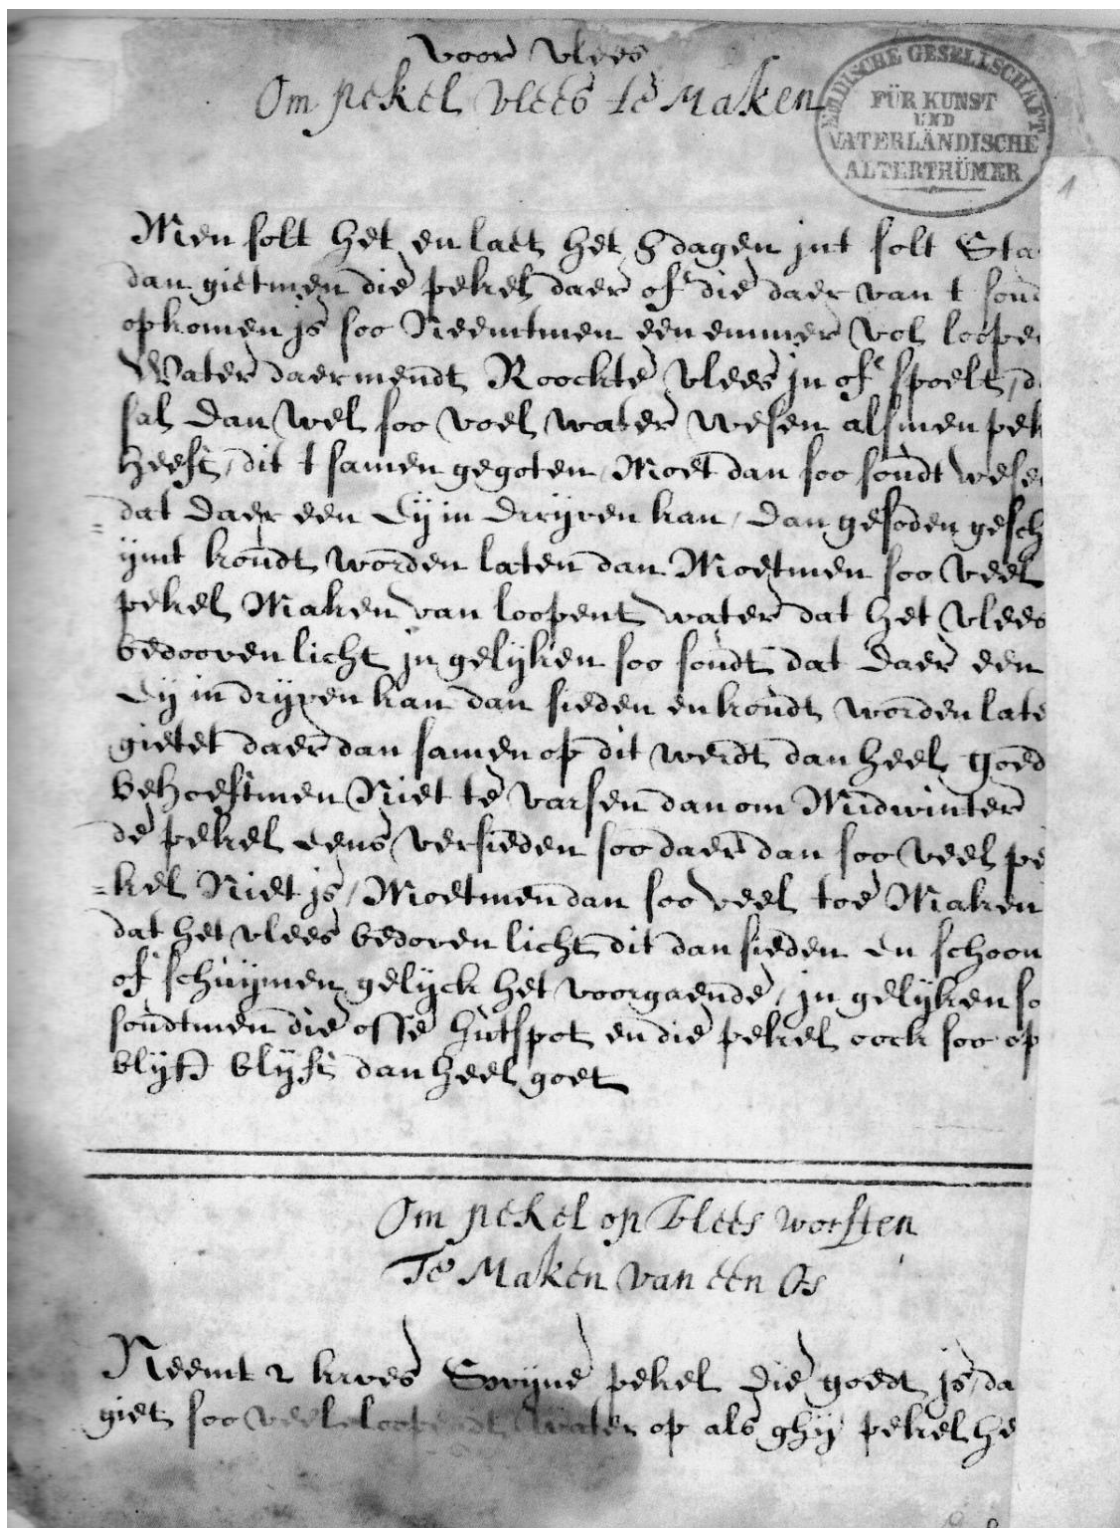 voor vlees
Om pekel vlees te Maken
EMDISCHE GESELLSCHAFT
FÜR KUNST
UND
VATERLÄNDISCHE
ALTERTHÜMER
1
Men solt het en laet het 8 dagen int solt Sta
dan gietmen die pekel daer of die daer van t sou
opkomen is soo Neemtmen een emmer vol loope
Water daer mendt Roockte vlees in of spoelt, d
sal dan wel soo voel water wesen alsmen pek
heeft, dit t samen gegoten, Moet dan soo soudt wese
dat daer een Ey in dryven kan, dan gesoden gesch
=
uymt koudt worden laten dan Moetmen soo veel
pekel Maken van loopent water dat het vlees
bedooven licht in gelyken soo soudt dat daer een
Ey in dryven kan dan sieden en koudt worden late
gietet daer dan samen op dit werdt dan heel goed
behoeftmen Niet te varsen dan om Midwinter
de pekel eens versieden soo daer dan soo veel pe
=kel Niet is, Moetmen dan soo veel toe Maken
dat het vlees bedoven licht dit dan sieden en schoon
of schuymen gelyck het voorgaende, in gelyken so
soudtmen die osse hutspot en die pekel oock soo op
blyft dan heel goet
Om pekel op vlees worsten
Te Maken van een Os
Neemt 2 kroes Swyne pekel die goedt is, da
giet soo veel loopendt water op als ghy pekel he